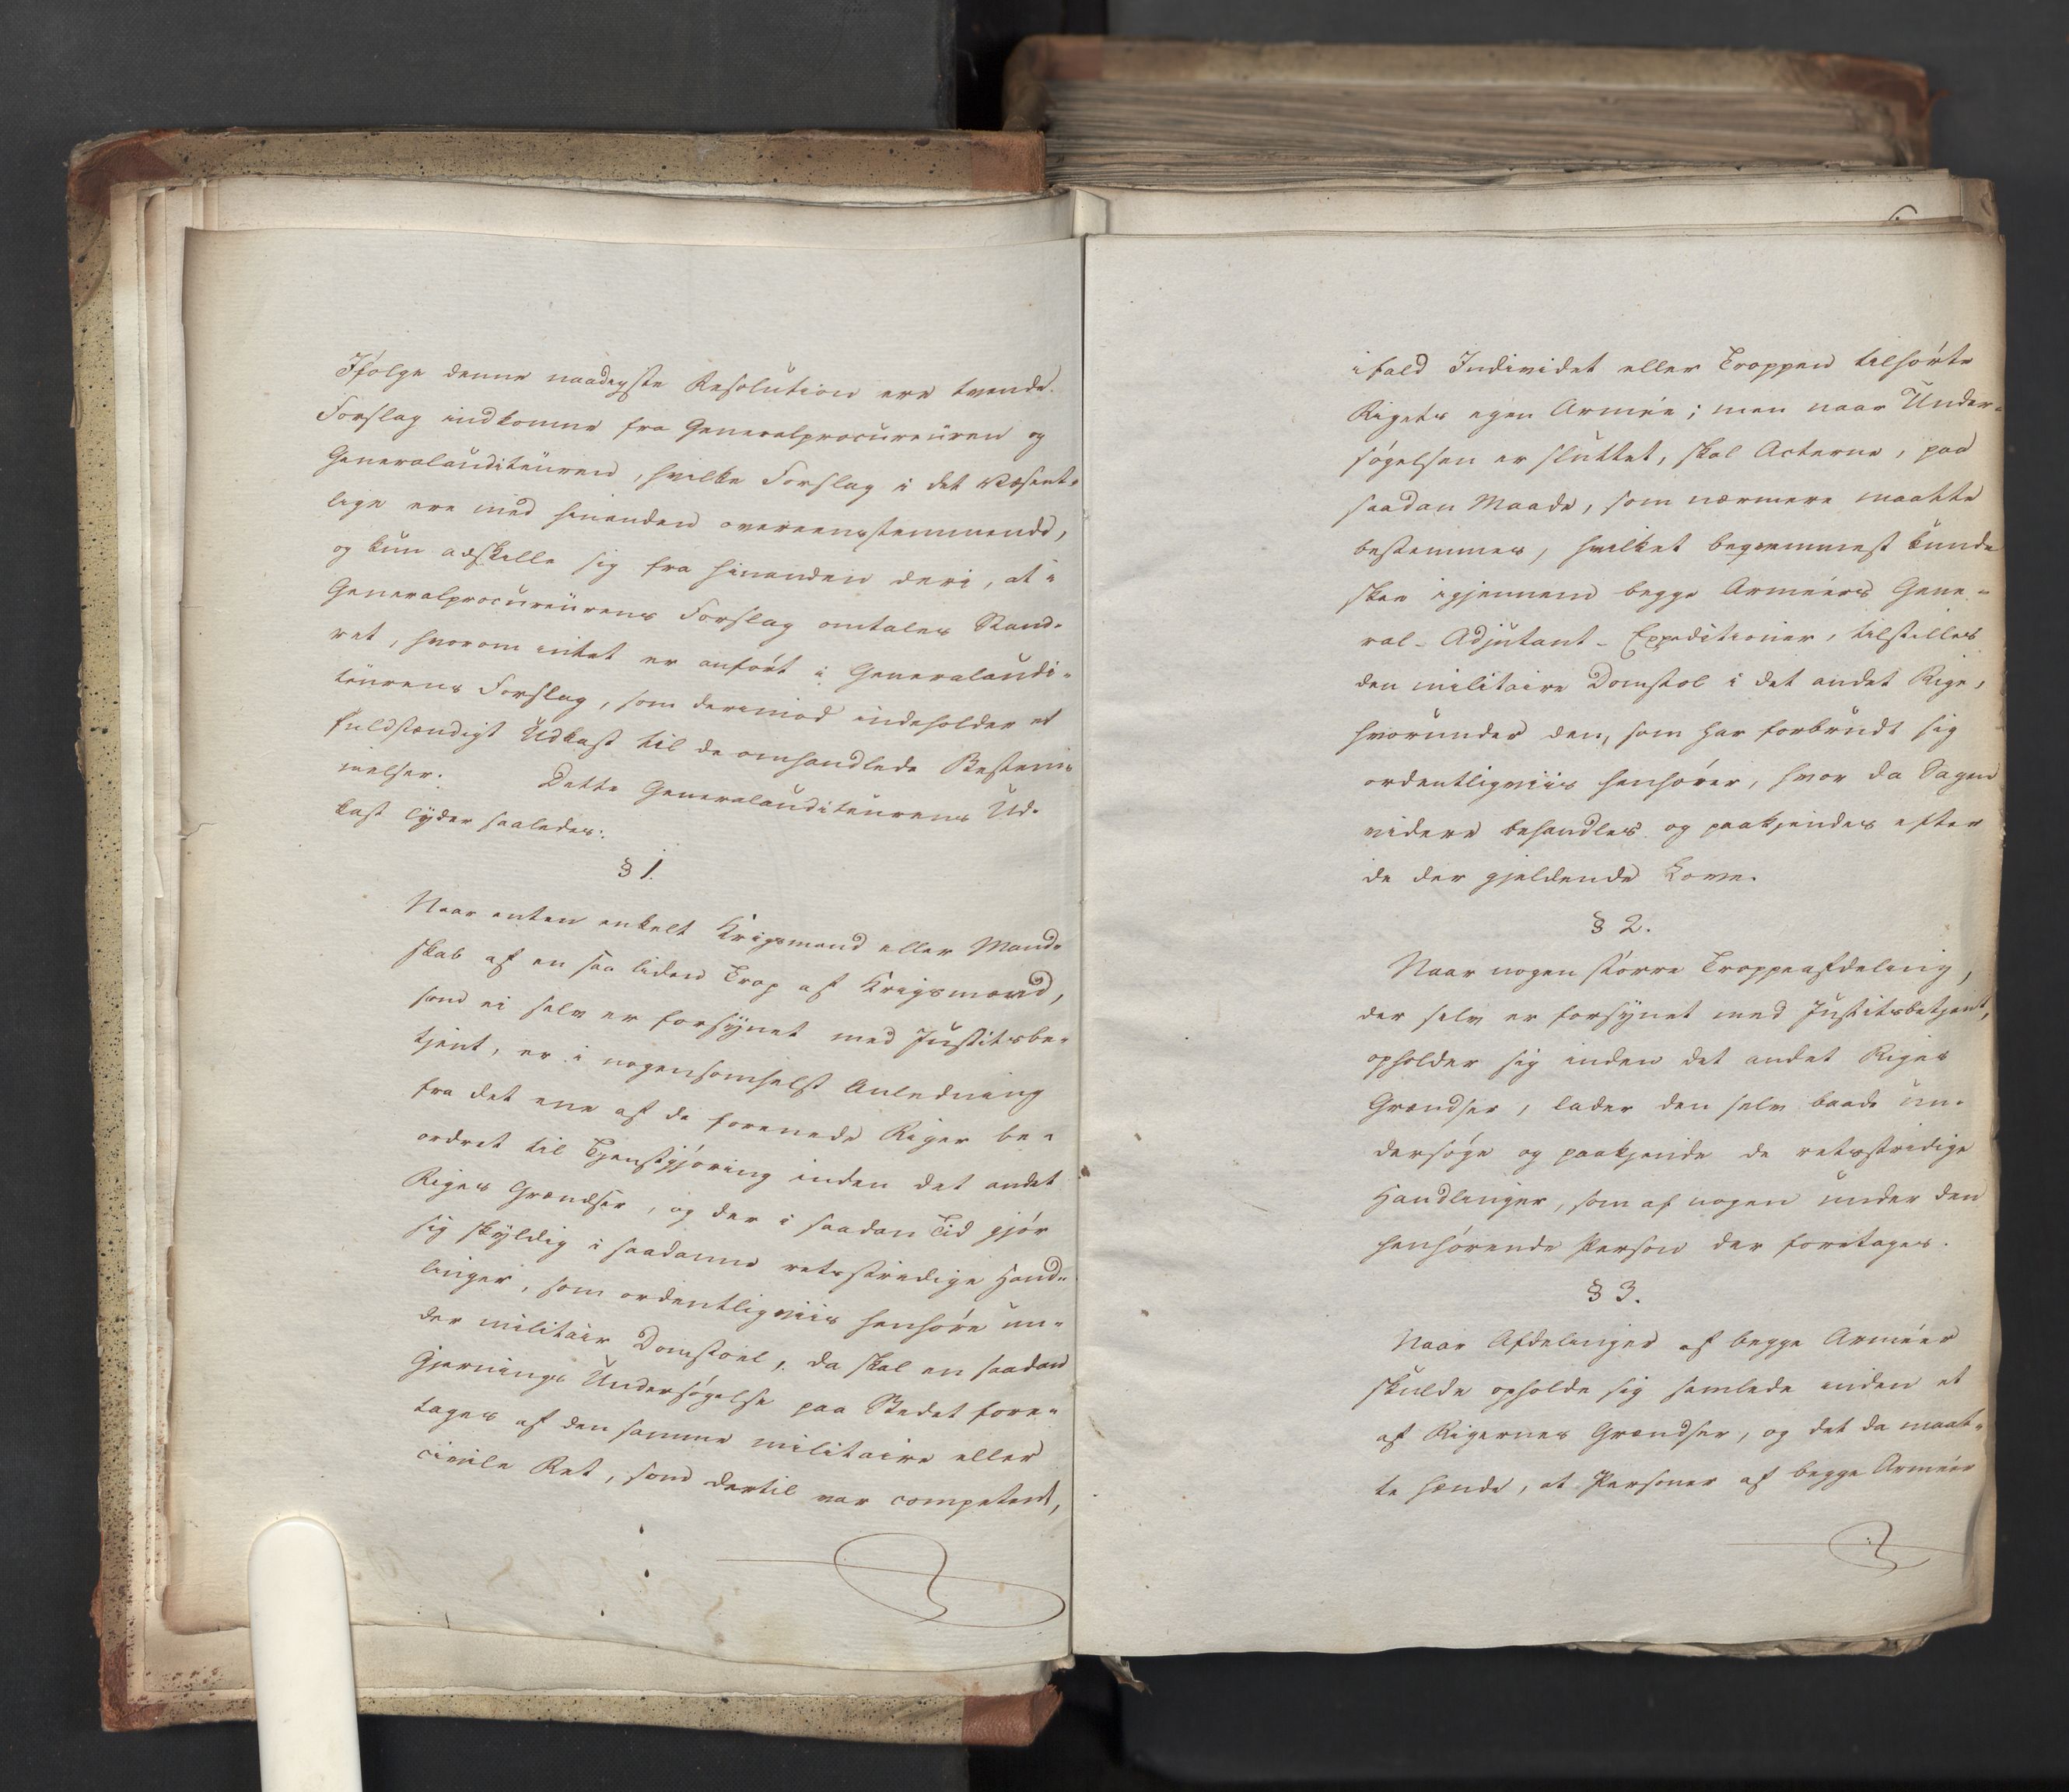 Ifølge denne naadigste Resolution ere tvende
Forslag indkomne fra Generalprocureuren og
Generalauditeuren, hvilke Forslag i det Væsent-
lige ere med hinanden overeensstemmende,
og kun adskille sig fra hinanden deri, at i
Generalprocureurens Forslag omtales Stand-
ret, hvorom intet er anført i Generalaudi-
teurens Forslag, som derimod indeholder et
fuldstændigt Udkast til de omhandlede Bestem-
melser. Dette Generalauditeurens Ud-
kast lyder saaledes:
§ 1.
Naar enten enkelt Krigsmand eller Mand-
skab af en saa liden Trop af Krigsmænd,
som ei selv er forsynet med Justitsbe-
tjent, er i nogensomhelst Anledning
fra det ene af de forenede Riger be-
ordret til Tjenstgjøring inden det andet
Riges Grændser, og der i saadan Tid gjør
sig skyldig i saadanne retsstridige Hand-
linger, som ordentligviis henhøre un-
der militair Domstoel, da skal en saadan
Gjernings Undersøgelse paa Stedet fore-
tages af den samme militaire eller
civile Ret, som dertil var competent,
ifald Individet eller Troppen tilhørte
Rigets egen Armée; men naar Under-
søgelsen er sluttet, skal Acterne, paa
saadan Maade, som nærmere maatte
bestemmes, hvilket beqvemmest kunde
skee igjennem begge Arméers Gene-
ral-Adjutant-Expeditioner, tilstilles
den militaire Domstol i det andet Rige,
hvorunder den, som har forbrudt sig
ordentligviis henhører, hvor da Sagen
videre behandles og paakjendes efter
de der gjeldende Love.
§ 2.
Naar nogen større Troppeafdeling,
der selv er forsynet med Justitsbetjent,
opholder sig inden det andet Riges
Grændser, lader den selv baade un-
dersøge og paakjende de retsstridige
Handlinger, som af nogen under den
henhørende Person der foretages.
§ 3.
Naar Afdelinger af begge Arméer
skulde opholde sig samlede inden et
af Rigernes Grændser, og det da maat-
te hænde, at Personer af begge Arméer